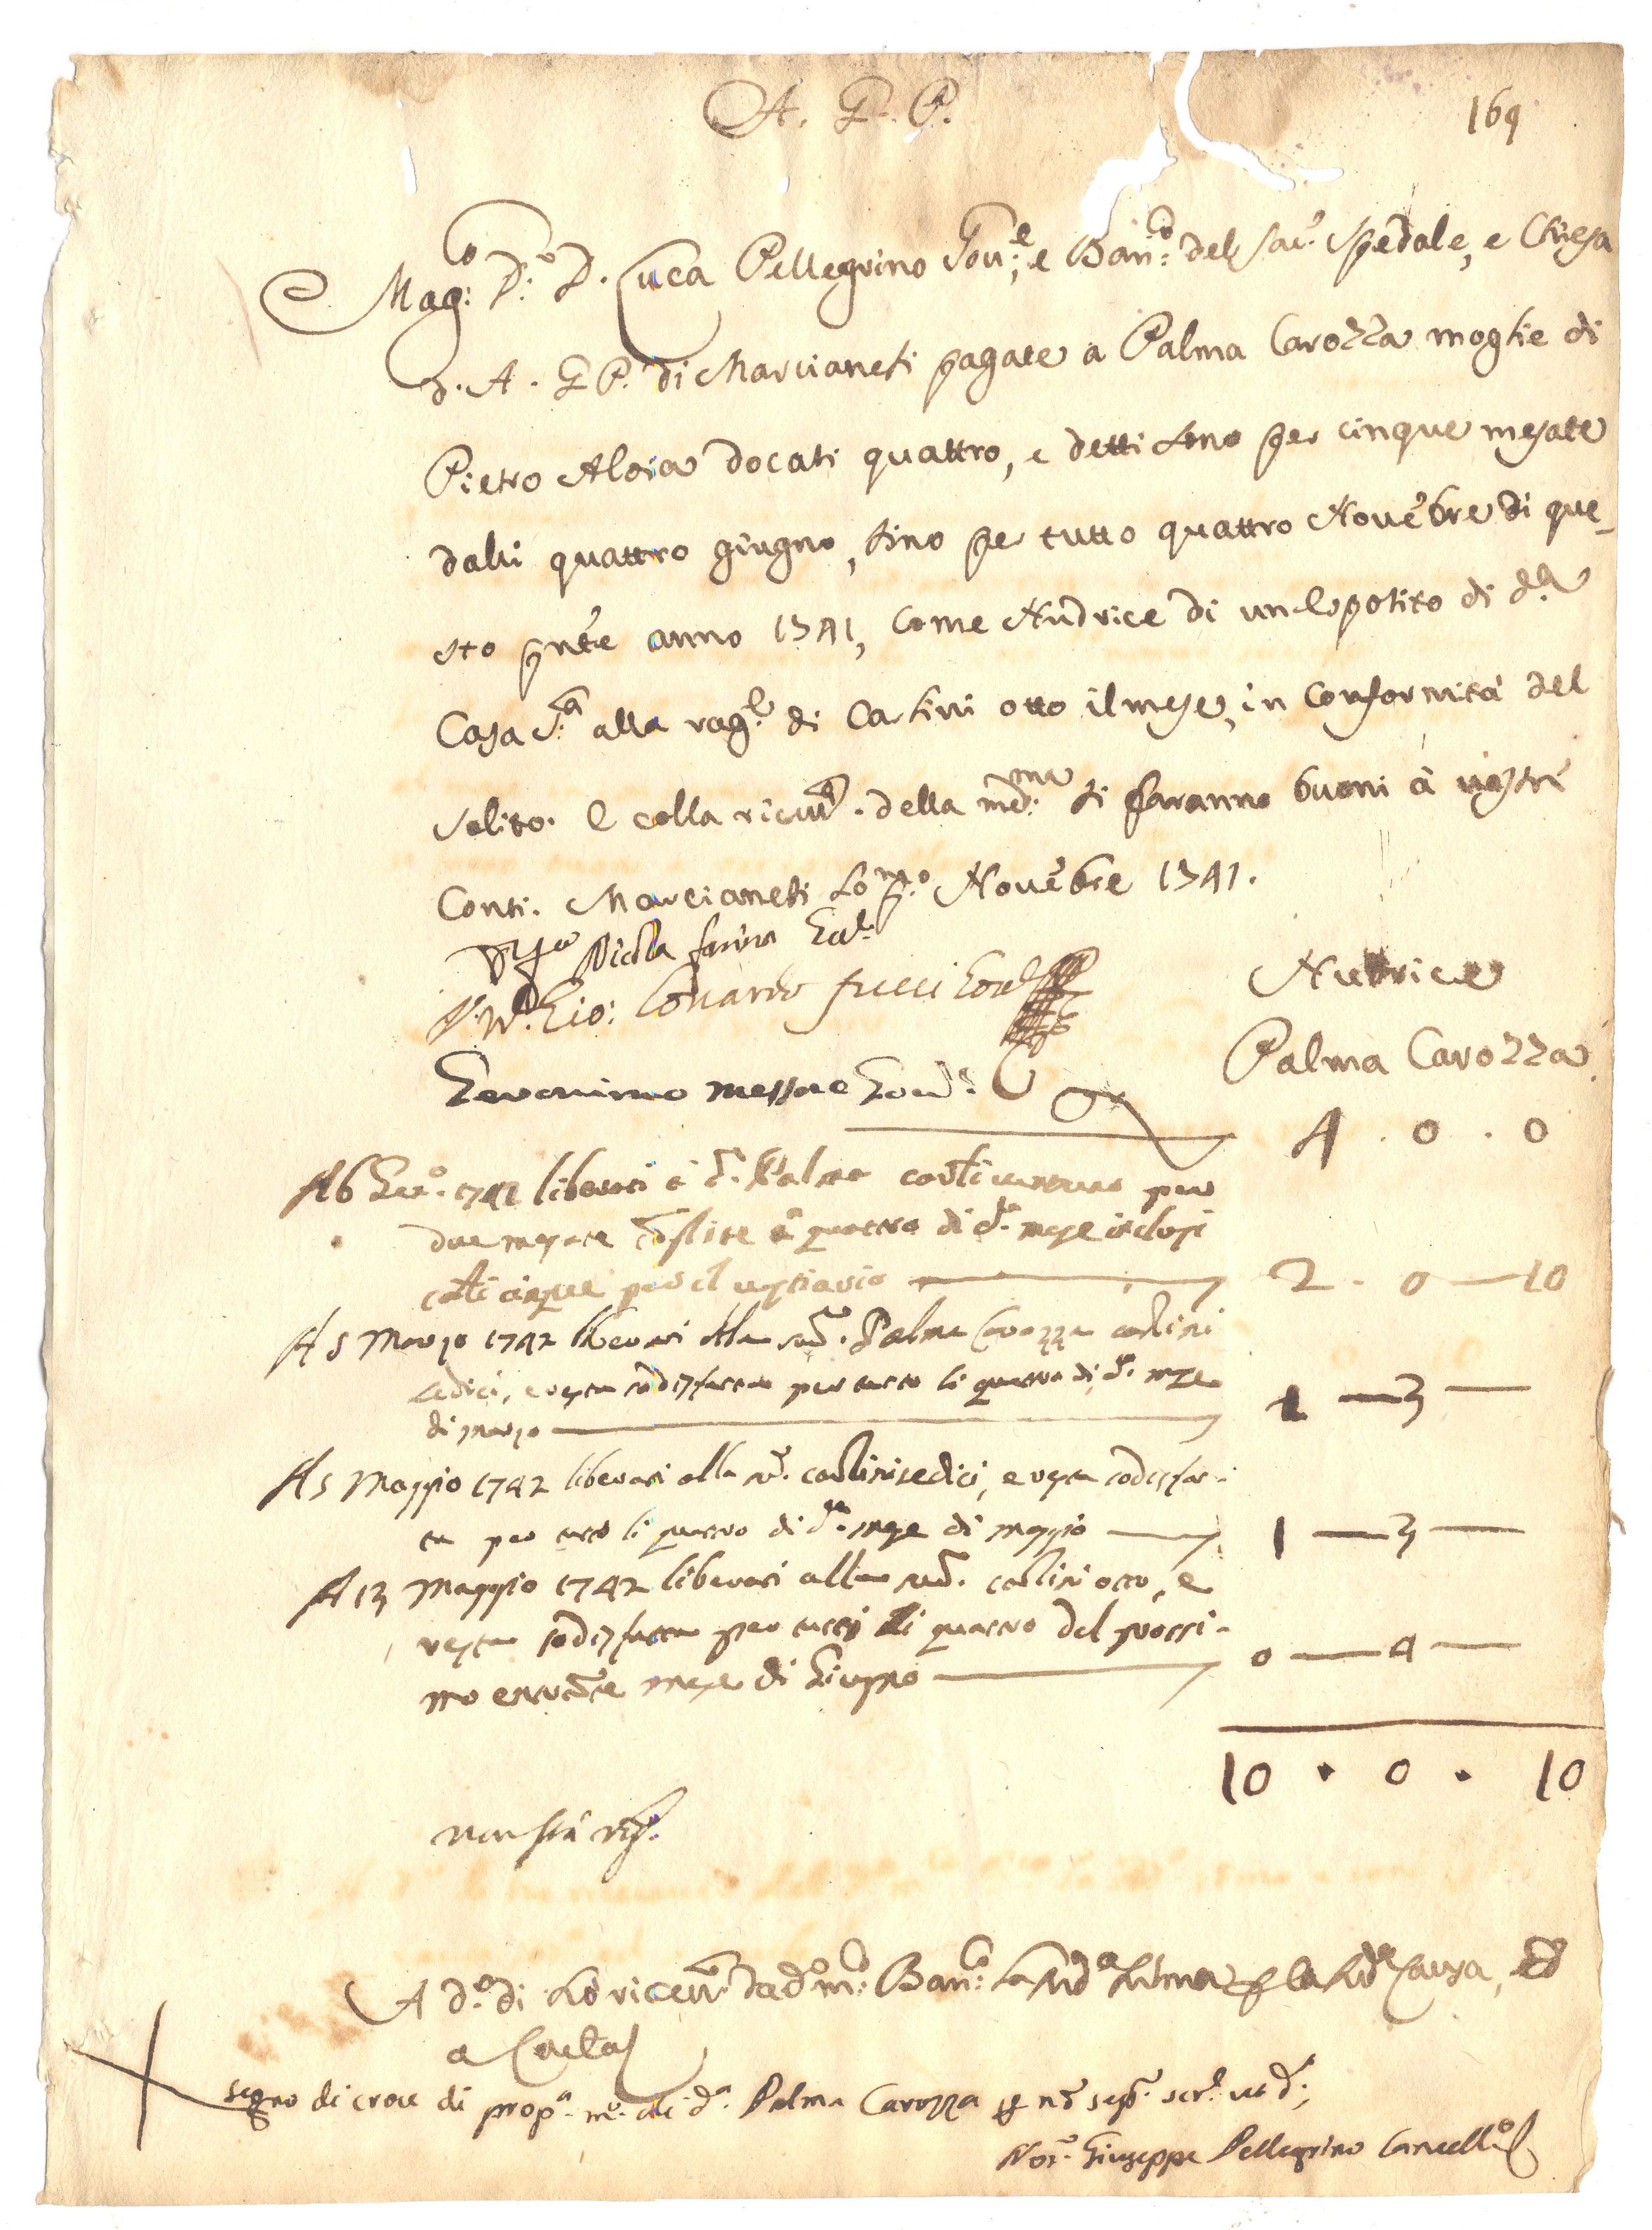 A. G. P.
169
Mag:co D.o D. Luca Pellegrino Gou:e e Ban:co del Sac.o Spedale, e Chiesa
d. A. G. P. di Marcianesi pagate a Palma Carozza moglie di
Pietro Aloia docati quattro, e detti sono per cinque mesate
dalli quattro giugno, sino per tutto quattro Nouēbre di que_
sto pn̄te anno 1741, come Nudrice di un Espotito di d.a
Casa S.a alla rag.e di Carlini otto il mese, in conformità del
solito. E colla riceu.a della med:ma si faranno buoni a' vostri
Conti. Marcianesi lo p.o Nouēbre 1741.
Nicola farina Gou.e
Gio: Lonardo fucci Gou.e
Geronimo Messore Gou.e
Nutrice
Palma Carozza
4 . 0 . 0
A 6 Gen.o 1742 liberati à d. Palma carlini ventuno per
due mesate finite a quattro di d.o mese inclusi
carlini cinque per il vestiario 2 . 0 — 10
A 5 Marzo 1742 liberati alla sud. Palma Carozza carlini
sedici, e resta sodisfatta per tutto li quattro di d.o mese
di marzo 1 — 3 —
A 5 Maggio 1742 liberati alla sud. carlini sedici, e resta sodisfat-
ta per tutto li quattro di d.o mese di maggio 1 — 3 —
A 13 Maggio 1742 liberati alla sud. carlini otto, e
resta sodisfatta per tutti li quattro del prossi-
mo entrante mese di Giugno 0 — 4 —
10 . 0 . 10
A d.o di hò riceu.to da d.o m:co Ban:co la sud.a summa p la sud.a causa, ed
a cautela
segno di croce di prop.a m.o di d.a Palma Carozza
Not. Giuseppe Pellegrino Cancell.o